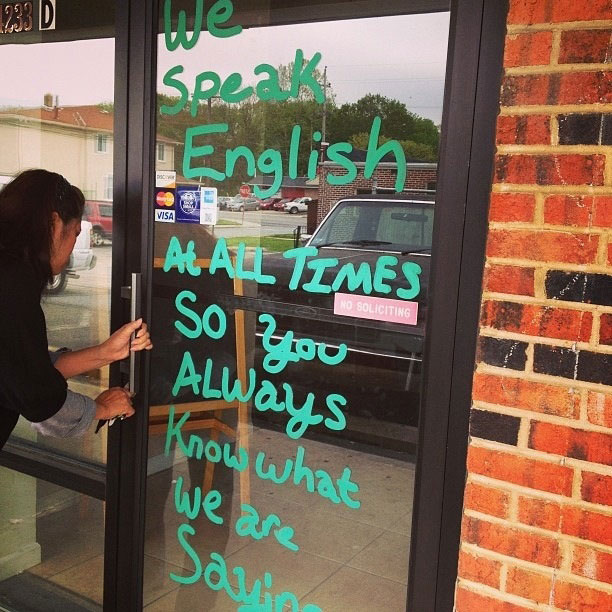 1233 D
We
Speak
English
DISCOVER
MasterCard
VISA
At ALL TIMES
NO SOLICITING
So you
ALWAys
Know what
we are
Saying